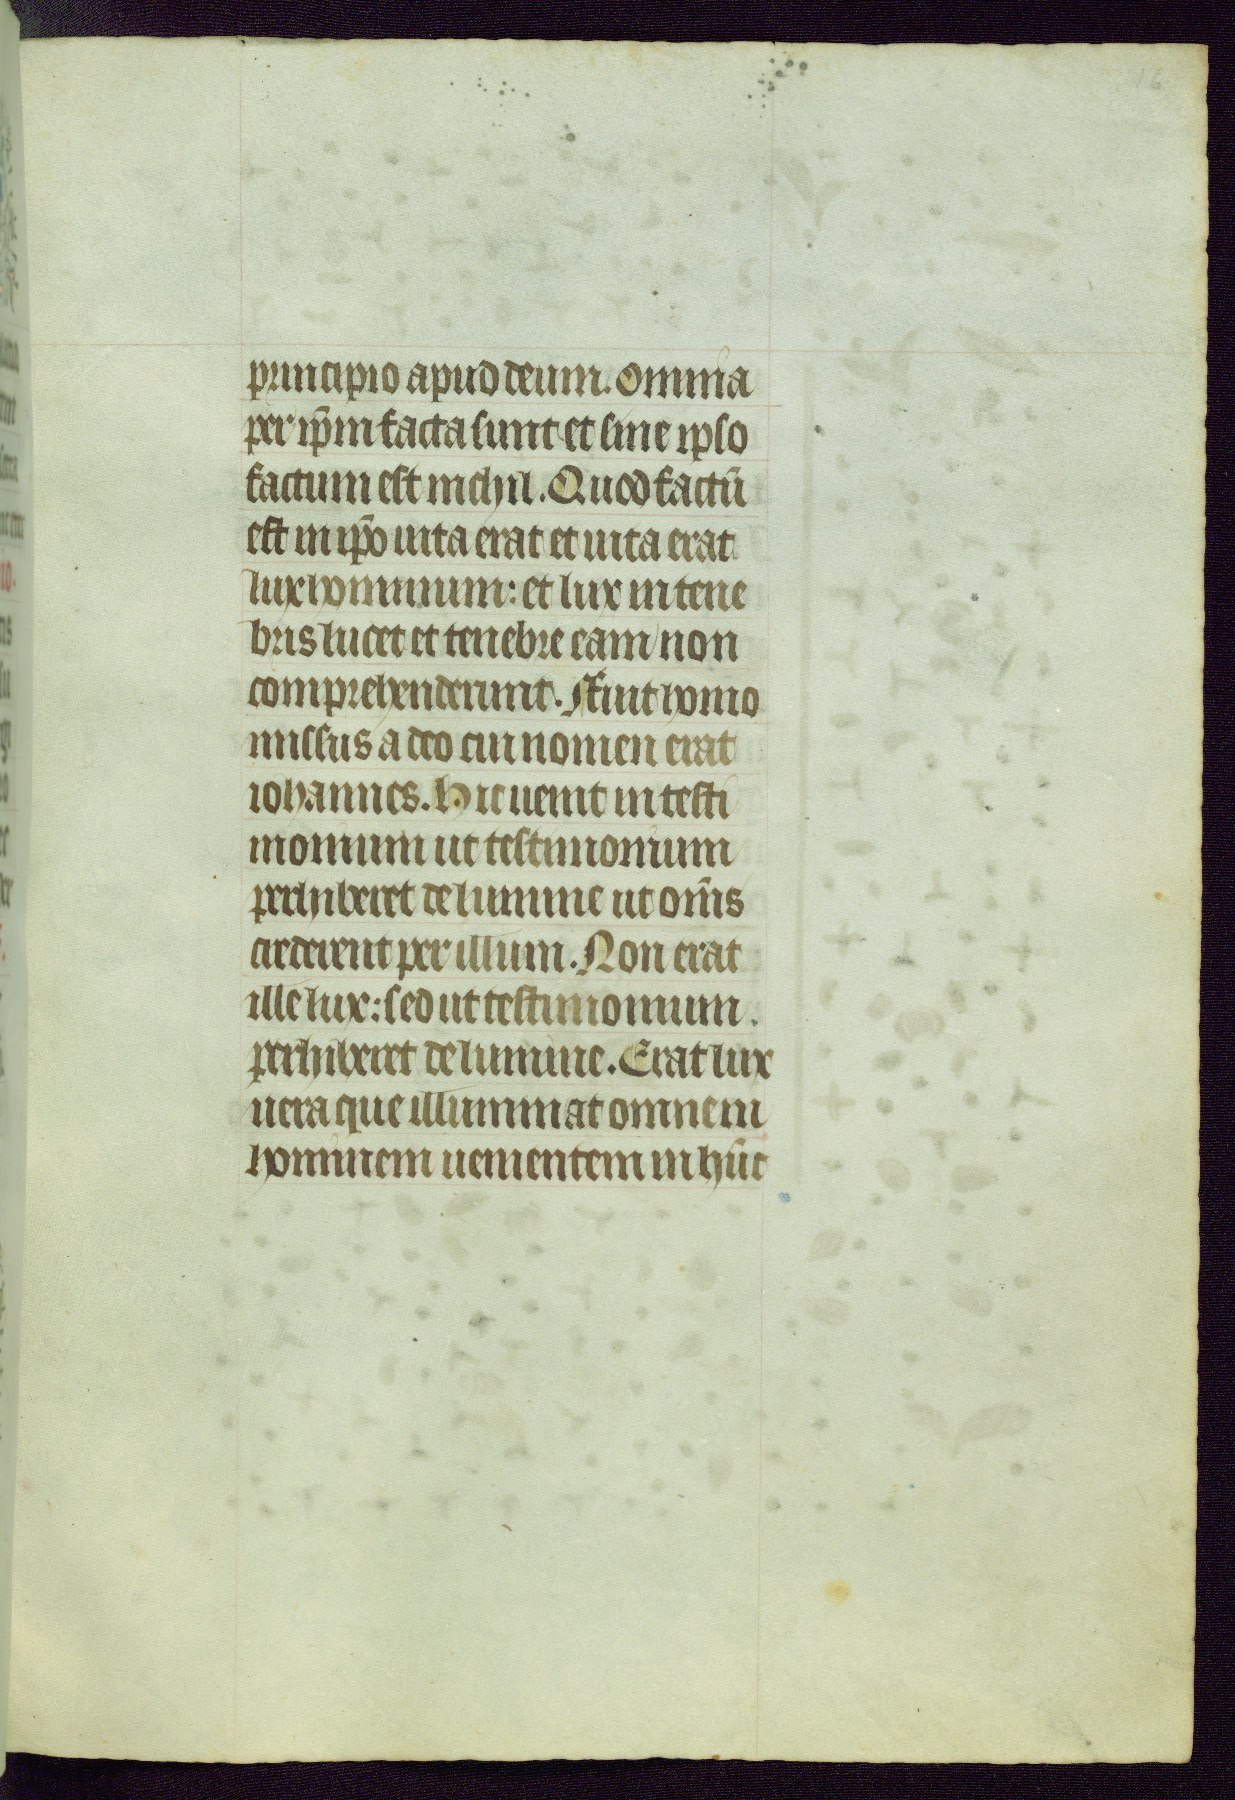 16
principio apud deum. Omnia
per ip̄m facta sunt et sine ipso
factum est nichil. Quod factū
est in ip̄o uita erat et uita erat
lux hominum: et lux in tene
bris lucet et tenebre eam non
comprehenderunt. Fuit homo
missus a deo cui nomen erat
iohannes. Hic uenit in testi
monium ut testimonium
perhiberet de lumine ut om̄s
crederent per illum. Non erat
ille lux: sed ut testimonium.
perhiberet de lumine. Erat lux
uera que illuminat omnem
hominem uenientem in hūc